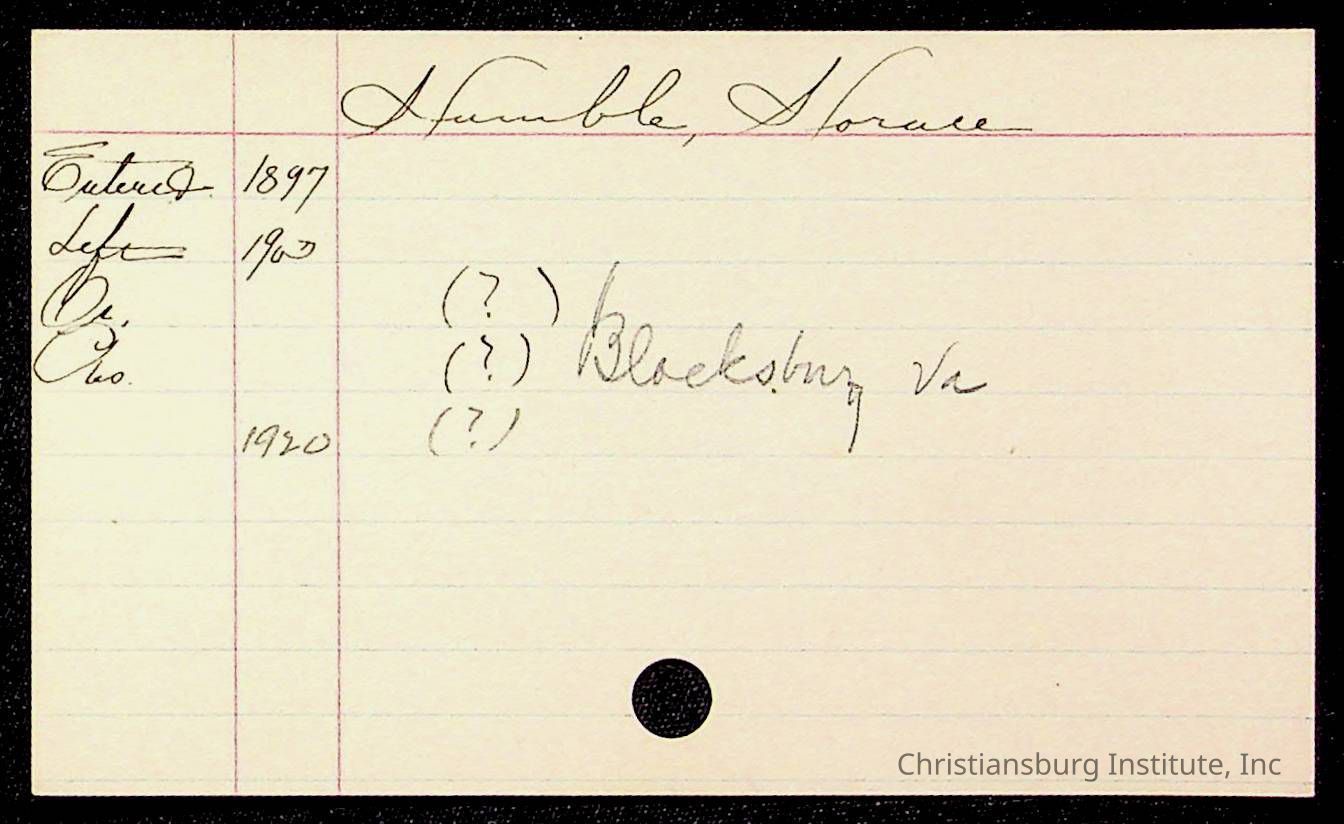 Humble, Horace
Entered 1897
Left 1900
Oc. (?)
Res. (?) Blacksburg Va
1920 (?)
Christiansburg Institute, Inc